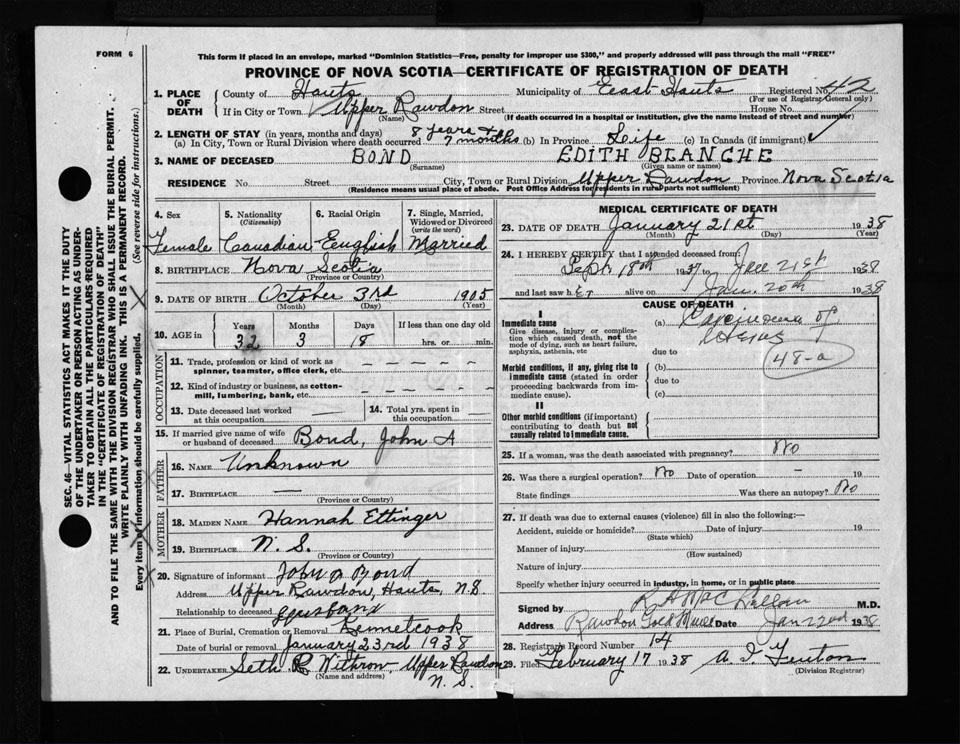 FORM 6
This form if placed in an envelope, marked "Dominion Statistics—Free, penalty for improper use $300," and properly addressed will pass through the mail "FREE"
PROVINCE OF NOVA SCOTIA—CERTIFICATE OF REGISTRATION OF DEATH
SEC. 46—VITAL STATISTICS ACT MAKES IT THE DUTY
OF THE UNDERTAKER OR PERSON ACTING AS UNDER-
TAKER TO OBTAIN ALL THE PARTICULARS REQUIRED
IN THE "CERTIFICATE OF REGISTRATION OF DEATH"
AND TO FILE THE SAME WITH THE DIVISION REGISTRAR WHO SHALL ISSUE THE BURIAL PERMIT.
WRITE PLAINLY WITH UNFADING INK. THIS IS A PERMANENT RECORD.
Every item of information should be carefully supplied. (See reverse side for instructions.)
1. PLACE OF DEATH
County of Hants Municipality of East Hants Registered No. 42
(For use of Registrar General only)
If in City or Town Upper Rawdon Street House No.
(Name) (If death occurred in a hospital or institution, give the name instead of street and number)
2. LENGTH OF STAY (in years, months and days)
(a) In City, Town or Rural Division where death occurred 8 years + 7 months (b) In Province Life (c) In Canada (if immigrant)
3. NAME OF DECEASED BOND EDITH BLANCHE
(Surname) (Given name or names)
RESIDENCE No. Street City, Town or Rural Division Upper Rawdon Province Nova Scotia
(Residence means usual place of abode. Post Office Address for residents in rural parts not sufficient)
4. Sex 5. Nationality (Citizenship) 6. Racial Origin 7. Single, Married, Widowed or Divorced (write the word)
Female Canadian English Married
8. BIRTHPLACE Nova Scotia
(Province or Country)
9. DATE OF BIRTH October 3rd 1905
(Month) (Day) (Year)
10. AGE in Years Months Days If less than one day old
32 3 18 hrs. or min.
OCCUPATION
11. Trade, profession or kind of work as spinner, teamster, office clerk, etc. — — — — —
12. Kind of industry or business, as cotton-mill, lumbering, bank, etc. — — — — —
13. Date deceased last worked at this occupation — 14. Total yrs. spent in this occupation —
15. If married give name of wife or husband of deceased Bond, John A
FATHER
16. NAME Unknown
17. BIRTHPLACE —
(Province or Country)
MOTHER
18. MAIDEN NAME Hannah Ettinger
19. BIRTHPLACE N. S.
(Province or Country)
20. Signature of informant John A Bond
Address Upper Rawdon, Hants, N.S.
Relationship to deceased Husband
21. Place of Burial, Cremation or Removal Kennetcook
Date of burial or removal January 23rd 1938
22. UNDERTAKER Seth R Withrow Upper Rawdon
(Name and address) N. S.
MEDICAL CERTIFICATE OF DEATH
23. DATE OF DEATH January 21st 1938
(Month) (Day) (Year)
24. I HEREBY CERTIFY that I attended deceased from:
Sept. 18th 1937 to Jan 21st 1938
and last saw her alive on Jan. 20th 1938
CAUSE OF DEATH
I
Immediate cause (a) Carcinoma of
Give disease, injury or complication which caused death, not the mode of dying, such as heart failure, asphyxia, asthenia, etc Uterus
due to
48-a
Morbid conditions, if any, giving rise to immediate cause (stated in order proceeding backwards from immediate cause). (b)
due to
(c)
II
Other morbid conditions (if important) contributing to death but not causally related to immediate cause.
25. If a woman, was the death associated with pregnancy? No
26. Was there a surgical operation? No Date of operation – 19
State findings Was there an autopsy? No
27. If death was due to external causes (violence) fill in also the following:—
Accident, suicide or homicide? Date of injury 19
(State which)
Manner of injury
(How sustained)
Nature of injury
Specify whether injury occurred in industry, in home, or in public place
Signed by R A MacLellan M.D.
Address Rawdon Gold Mines Date Jan 22nd 1938
28. Registrar's Record Number 14
29. Filed February 17 1938 A. I. Fenton
(Division Registrar)